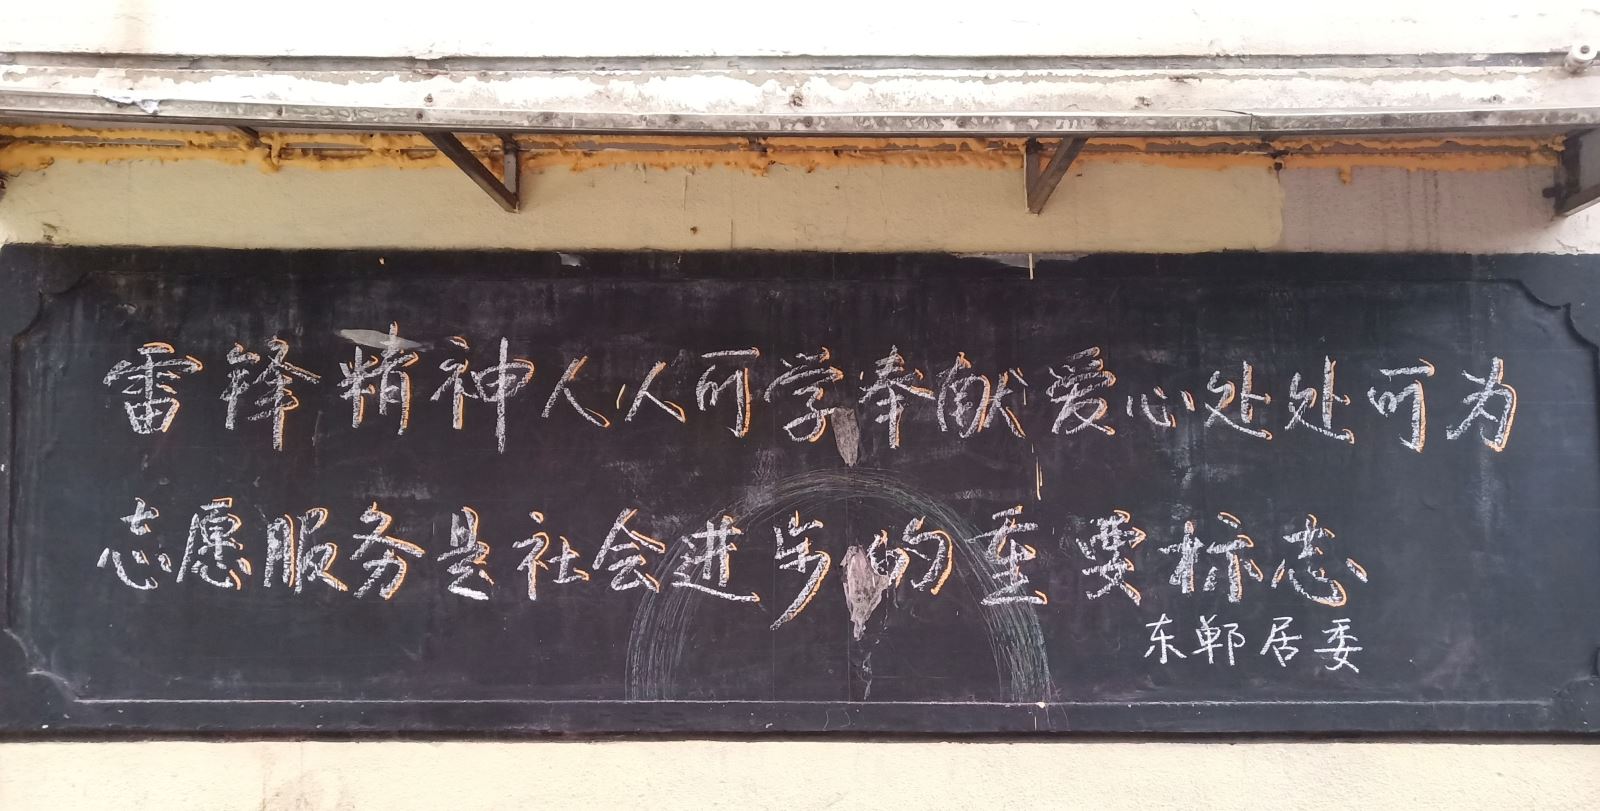 雷锋精神人人可学奉献爱心处处可为
志愿服务是社会进步的重要标志
东郸居委